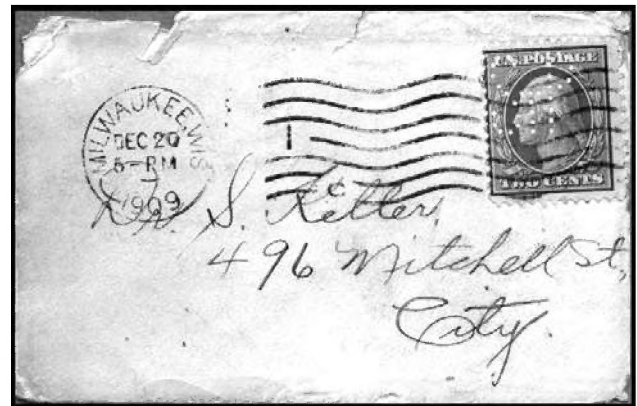 MILWAUKEE, WIS
DEC 20
5-PM
1909
1
U.S. POSTAGE
TWO CENTS
Dr. S. Kitter,
496 Mitchell St,
City.